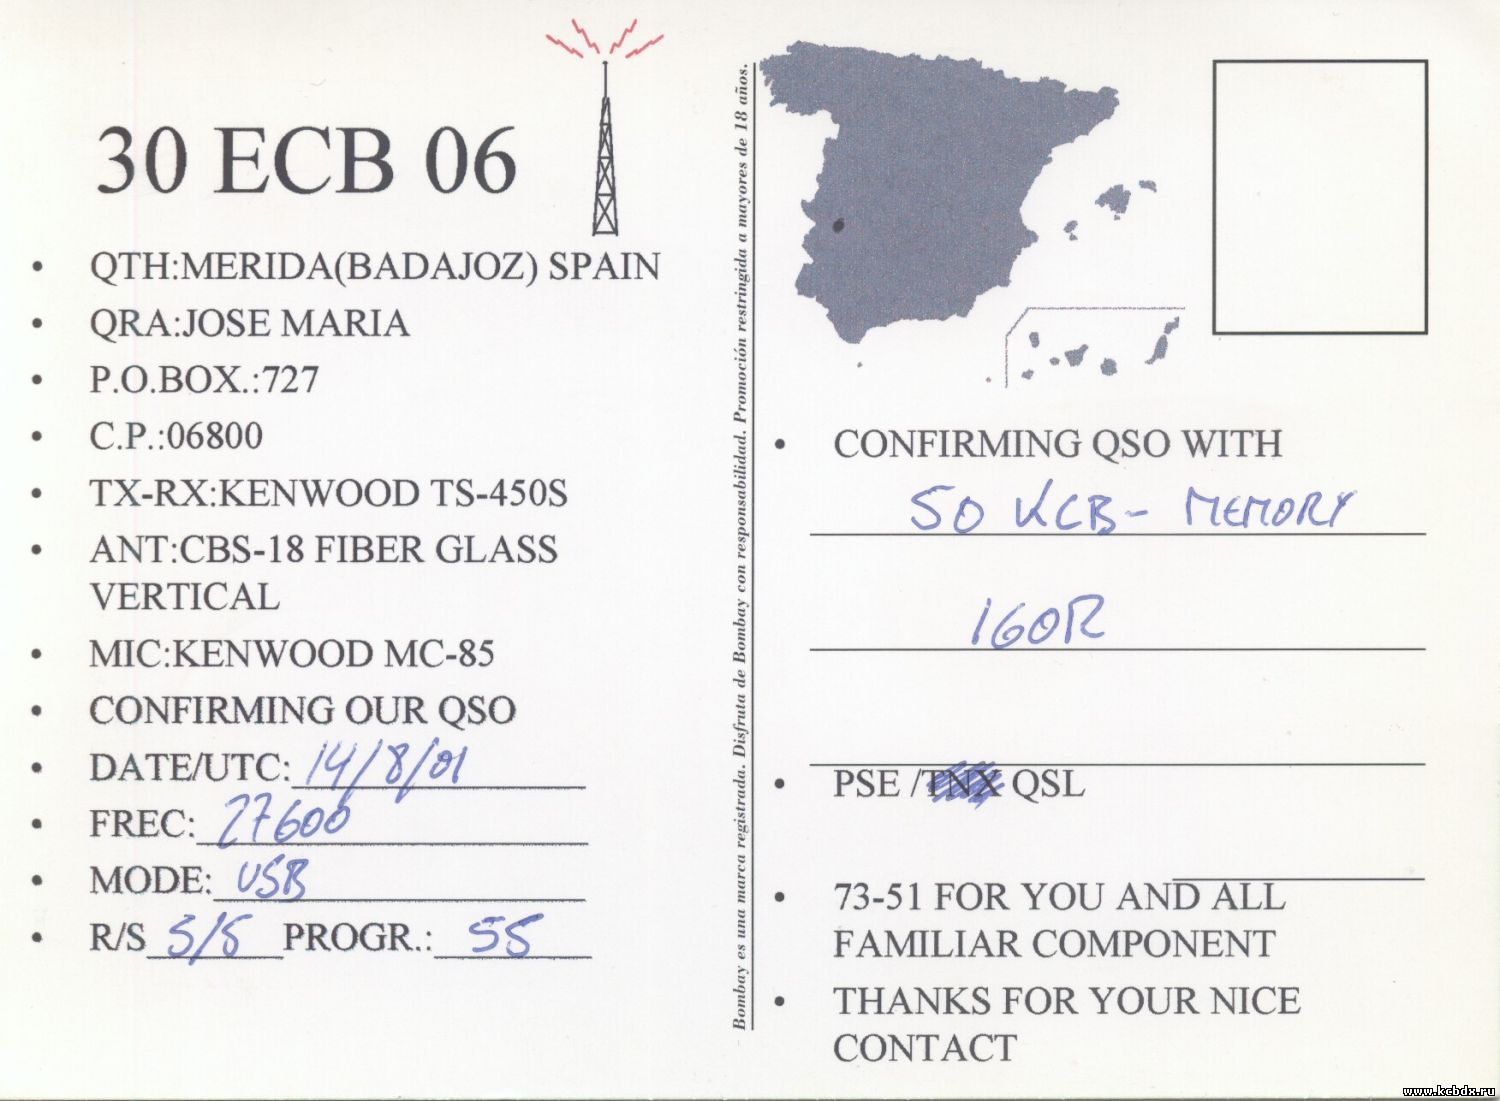 30 ECB 06
• QTH:MERIDA(BADAJOZ) SPAIN
• QRA:JOSE MARIA
• P.O.BOX.:727
• C.P.:06800
• TX-RX:KENWOOD TS-450S
• ANT:CBS-18 FIBER GLASS
VERTICAL
• MIC:KENWOOD MC-85
• CONFIRMING OUR QSO
• DATE/UTC: 14/8/01
• FREC: 27600
• MODE: USB
• R/S 5/5 PROGR.: 55
Bombay es una marca registrada. Disfruta de Bombay con responsabilidad. Promoción restringida a mayores de 18 años.
• CONFIRMING QSO WITH
50 KCB- MEMORY
IGOR
• PSE /TNX QSL
• 73-51 FOR YOU AND ALL
FAMILIAR COMPONENT
• THANKS FOR YOUR NICE
CONTACT
www.kcbdx.ru